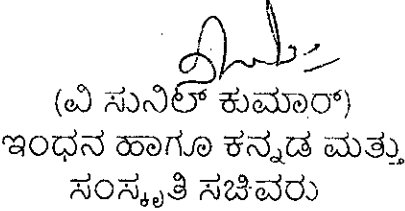 (ವಿ ಸುನಿಲ್ ಕುಮಾರ್)
ಇಂಧನ ಹಾಗೂ ಕನ್ನಡ ಮತ್ತು
ಸಂಸ್ಕೃತಿ ಸಚಿವರು